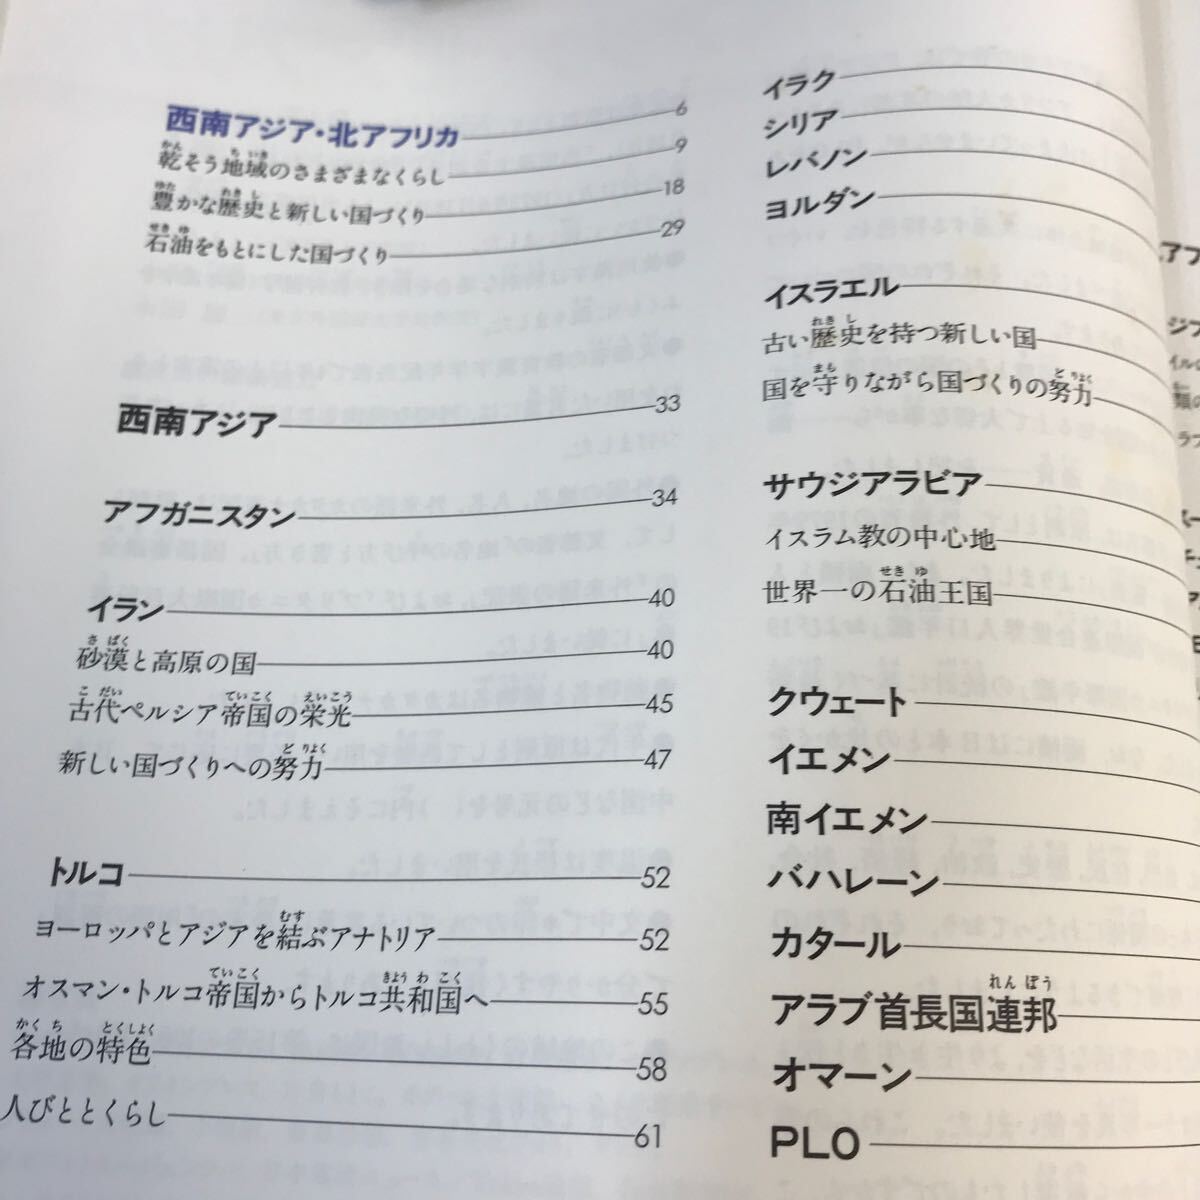 西南アジア・北アフリカ 6
乾そう地域のさまざまなくらし 9
豊かな歴史と新しい国づくり 18
石油をもとにした国づくり 29
西南アジア 33
アフガニスタン 34
イラン 40
砂漠と高原の国 40
古代ペルシア帝国の栄光 45
新しい国づくりへの努力 47
トルコ 52
ヨーロッパとアジアを結ぶアナトリア 52
オスマン・トルコ帝国からトルコ共和国へ 55
各地の特色 58
人びととくらし 61
イラク
シリア
レバノン
ヨルダン
イスラエル
古い歴史を持つ新しい国
国を守りながら国づくりの努力
サウジアラビア
イスラム教の中心地
世界一の石油王国
クウェート
イエメン
南イエメン
バハレーン
カタール
アラブ首長国連邦
オマーン
PLO